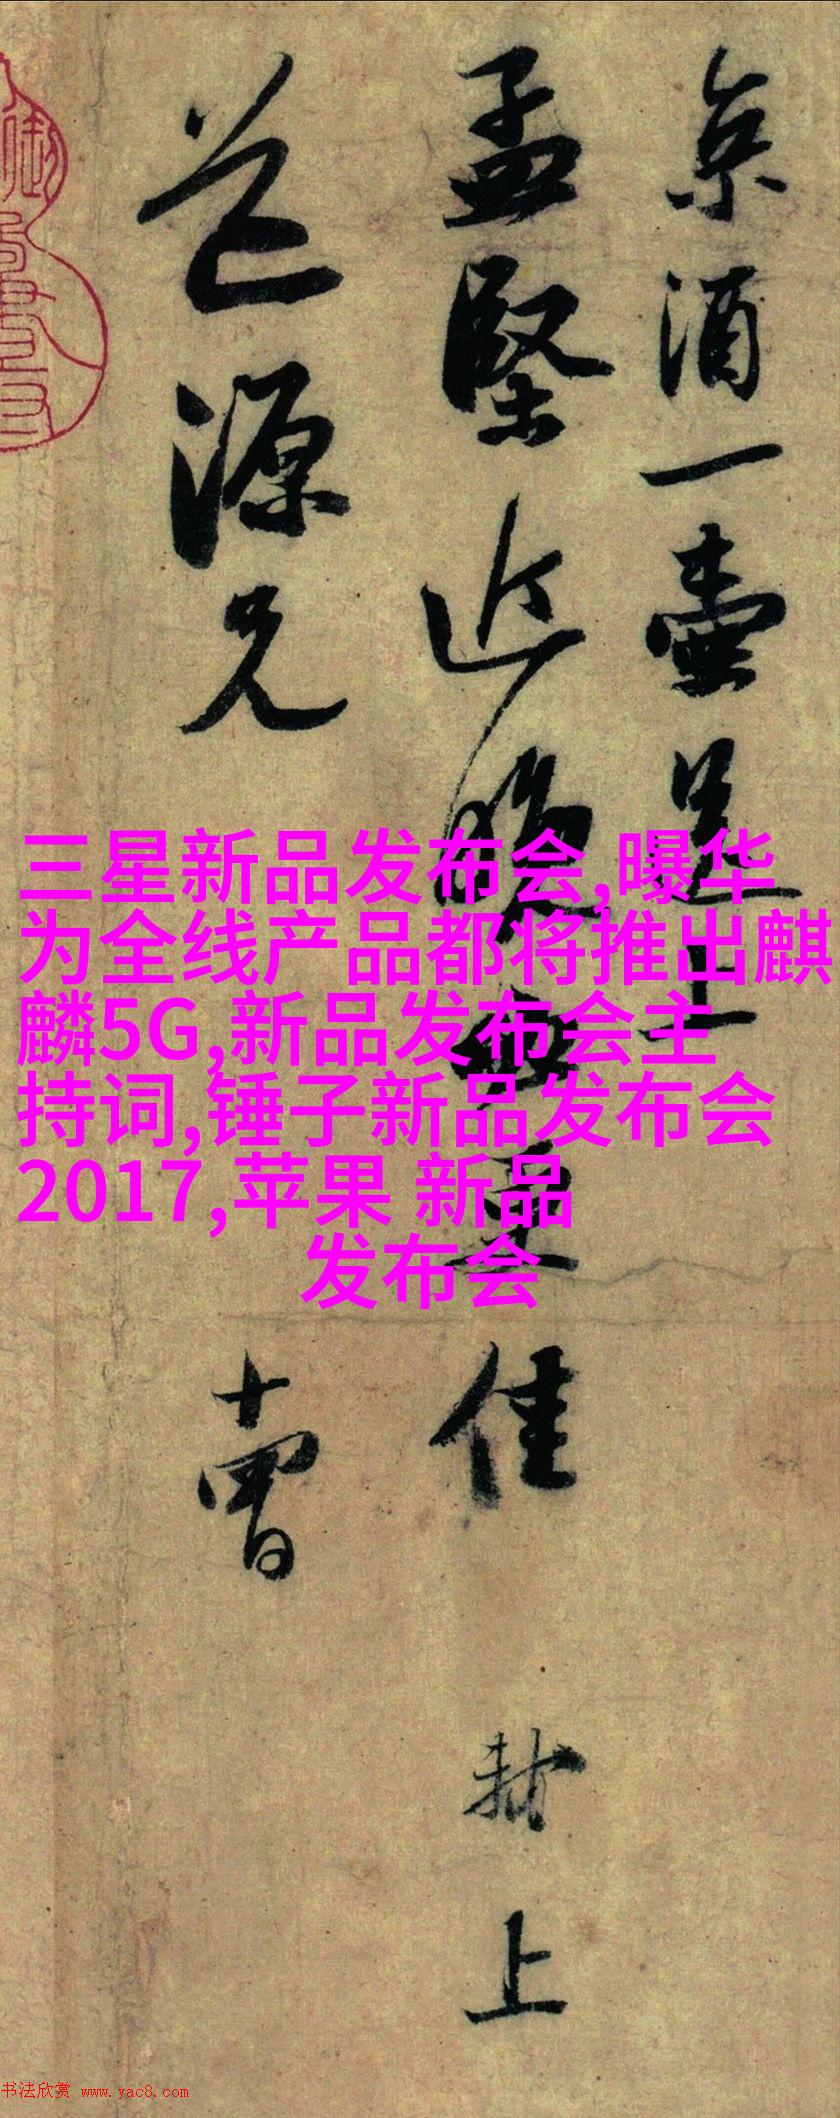 京酒一壶送上
孟坚近晚必更佳
芒源兄
十曾
封上
三星新品发布会,曝华
为全线产品都将推出麒
麟5G,新品发布会主
持词,锤子新品发布会
2017,苹果 新品
发布会
书法欣赏 www.yac8.com